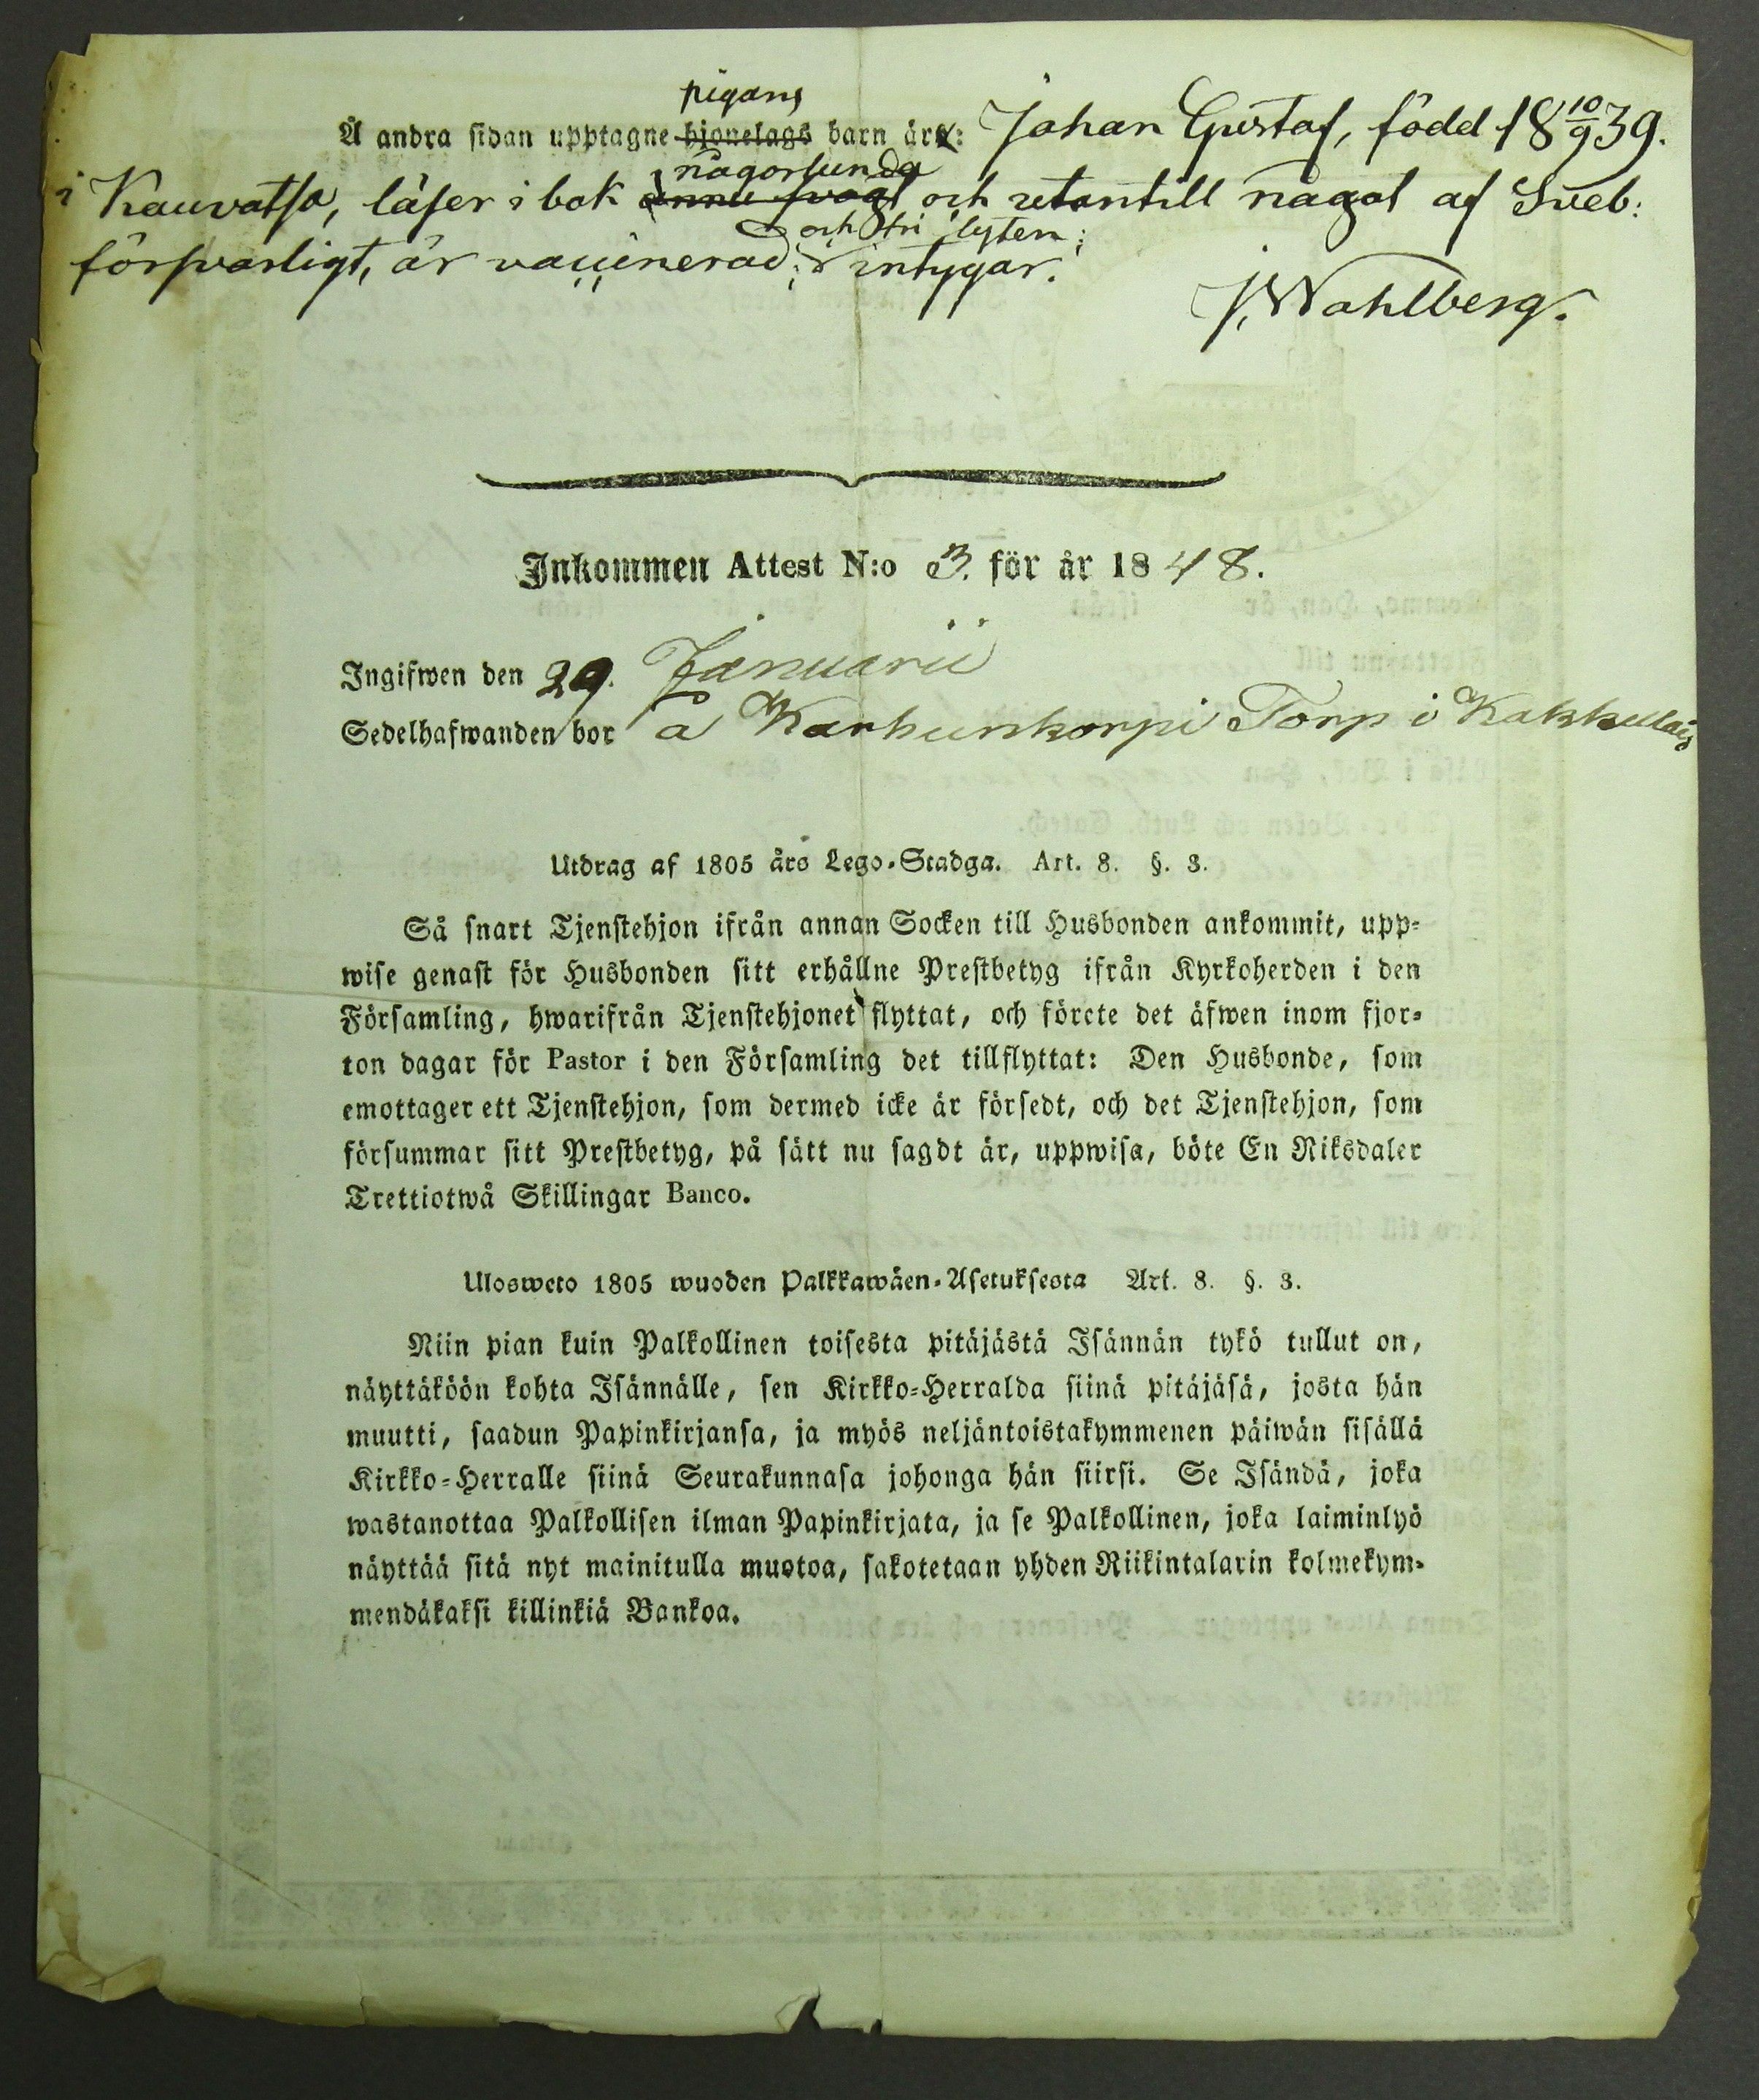 pigans
Å andra sidan upptagne hjonelags barn äro: Johan Gustaf, född 18 10/9 39.
någorlunda
i Kauvatsa, läser i bok ännu svagt och utantill något af Sveb:
och fri lyten;
försvarligt, är vaccinerad; intygar.
J. Wahlberg.
Inkommen Attest N:o 3. för år 1848.
Ingifwen den 29. Januarii
Sedelhafwanden bor å Karhunkorpi Torp i Kakkulais
Utdrag af 1805 års Lego-Stadga. Art. 8. §. 3.
Så snart Tjenstehjon ifrån annan Socken till Husbonden ankommit, upp-
wise genast för Husbonden sitt erhållne Prestbetyg ifrån Kyrkoherden i den
Församling, hwarifrån Tjenstehjonet flyttat, och förete det äfwen inom fjor-
ton dagar för Pastor i den Församling det tillflyttat: Den Husbonde, som
emottager ett Tjenstehjon, som dermed icke är försedt, och det Tjenstehjon, som
försummar sitt Prestbetyg, på sätt nu sagdt är, uppwisa, böte En Riksdaler
Trettiotwå Skillingar Banco.
Ulosweto 1805 wuoden Palkkawäen-Asetuksesta Art. 8. §. 3.
Niin pian kuin Palkollinen toisesta pitäjästä Isännän tykö tullut on,
näyttäköön kohta Isännälle, sen Kirkko-Herralda siinä pitäjäsä, josta hän
muutti, saadun Papinkirjansa, ja myös neljäntoistakymmenen päiwän sisällä
Kirkko-Herralle siinä Seurakunnasa johonga hän siirsi. Se Isändä, joka
wastanottaa Palkollisen ilman Papinkirjata, ja se Palkollinen, joka laiminlyö
näyttää sitä nyt mainitulla muotoa, sakotetaan yhden Riikintalarin kolmekym-
mendäkaksi killinkiä Bankoa.